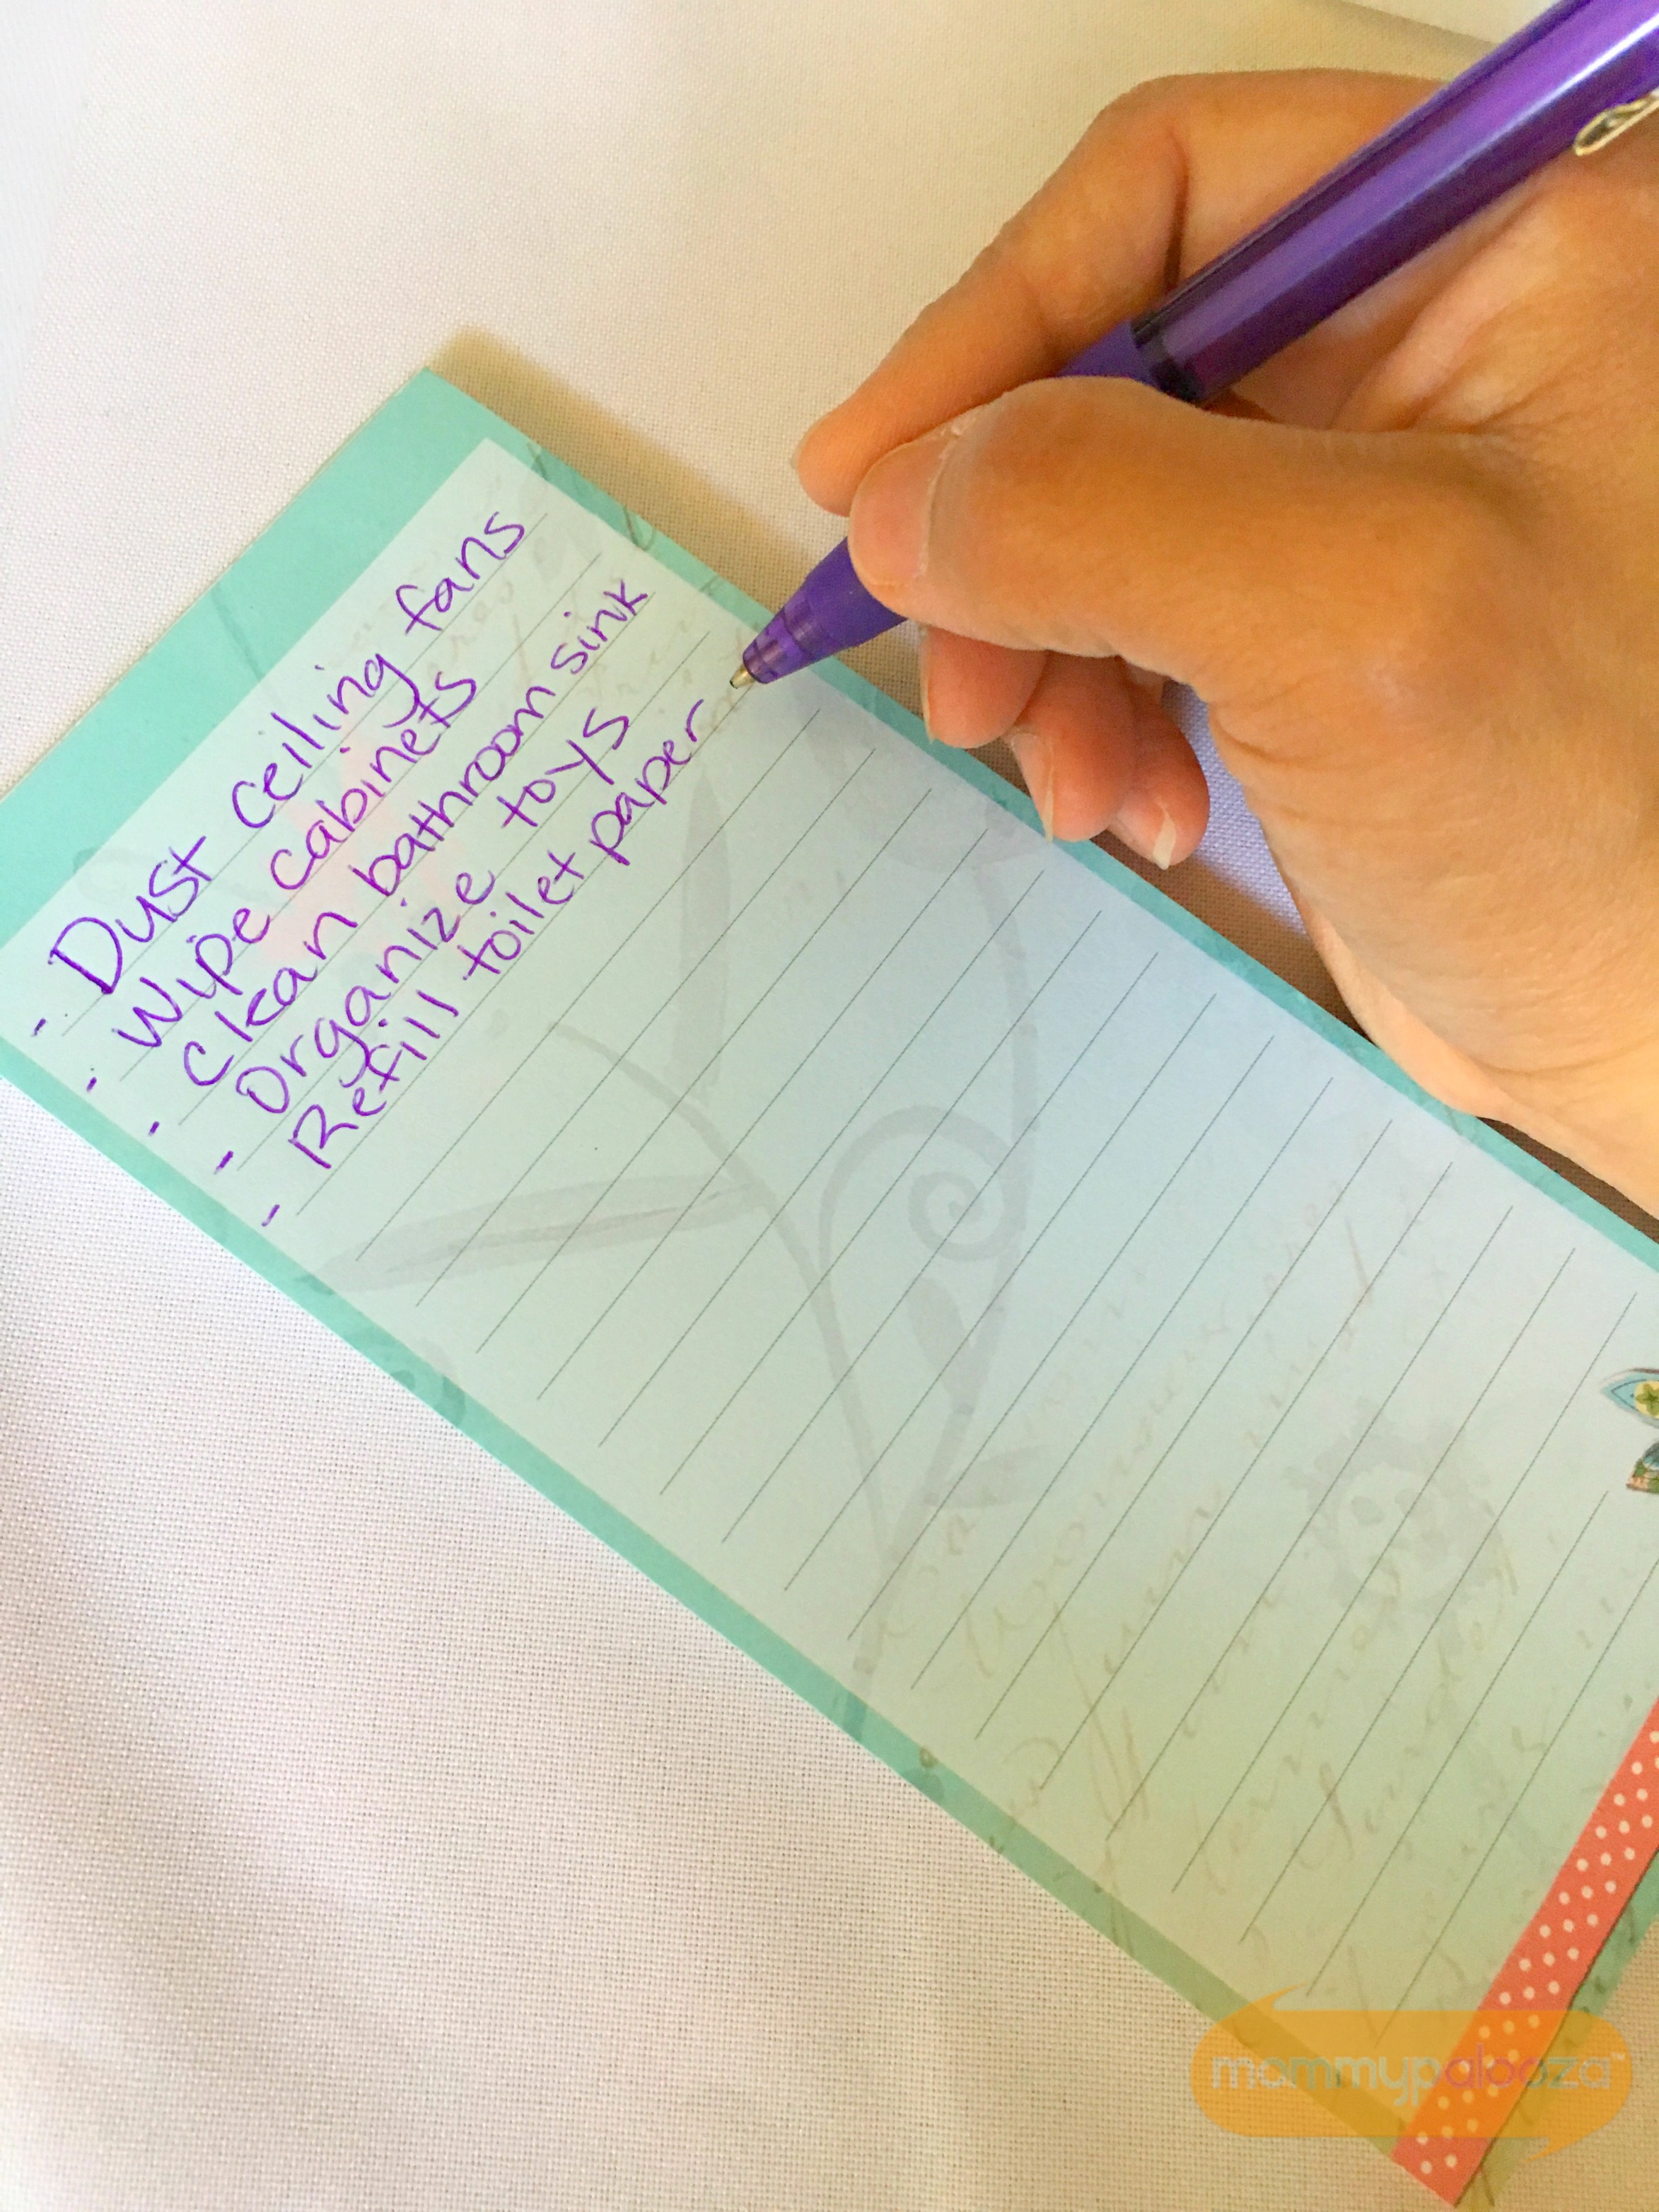 - Dust ceiling fans
- Wipe cabinets
- Clean bathroom sink
- Organize toys
- Refill toilet paper
mommypalooza™